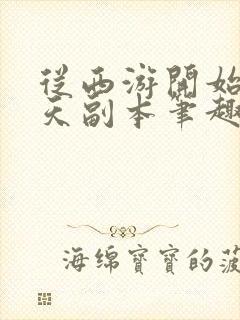 從西游開始
天副本筆趣
海绵寶寶的菠